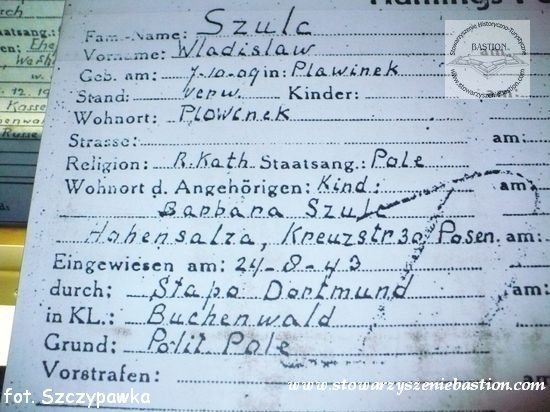 Häftlings-P
Fam.-Name: Szulc
Vorname: Wladislaw
Geb. am: 7-10-09 in: Plawinek
Stand: verw. Kinder:
Wohnort: Plowenek
Strasse: am:
Religion: R.Kath Staatsang.: Pole
Wohnort d. Angehörigen: Kind: am:
Barbara Szulc
Hohensalza, Kreuzstr 30 Posen. am:
Eingewiesen am: 24-8-43
durch: Stapo Dortmund am:
in KL: Buchenwald
Grund: Polit Pole
Vorstrafen: am
Stowarzyszenie Historyczno-Turystyczne
BASTION
www.stowarzyszeniebastion.com
fot. Szczypawka
www.stowarzyszeniebastion.com